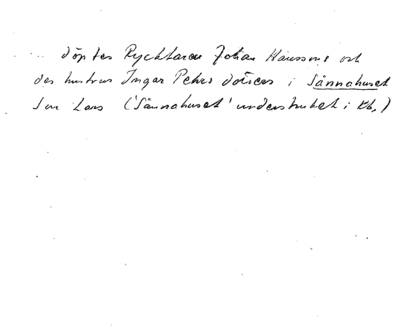 ... döptes Rychtaren Johan Hanssons och
des hustrus Ingar Pehrs doters i Sånnahuset
Son Lars ('Sånnahuset' understruket i kb.)